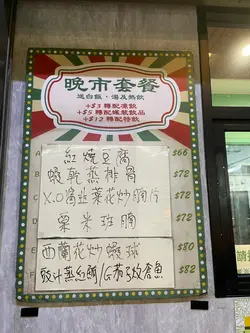 晚市套餐
送白飯，湯及熱飲
+$3 轉配凍飲
+$5 轉配罐裝飲品
+$12 轉配特飲
A 紅燒豆腐 $66
B 蝦乾蒸排骨 $72
C X.O醬韭菜花炒腩片 $72
D 粟米班腩 $72
E 西蘭花炒蝦球 $80
F 豉汁蒸 /G茄子炆倉魚 $82